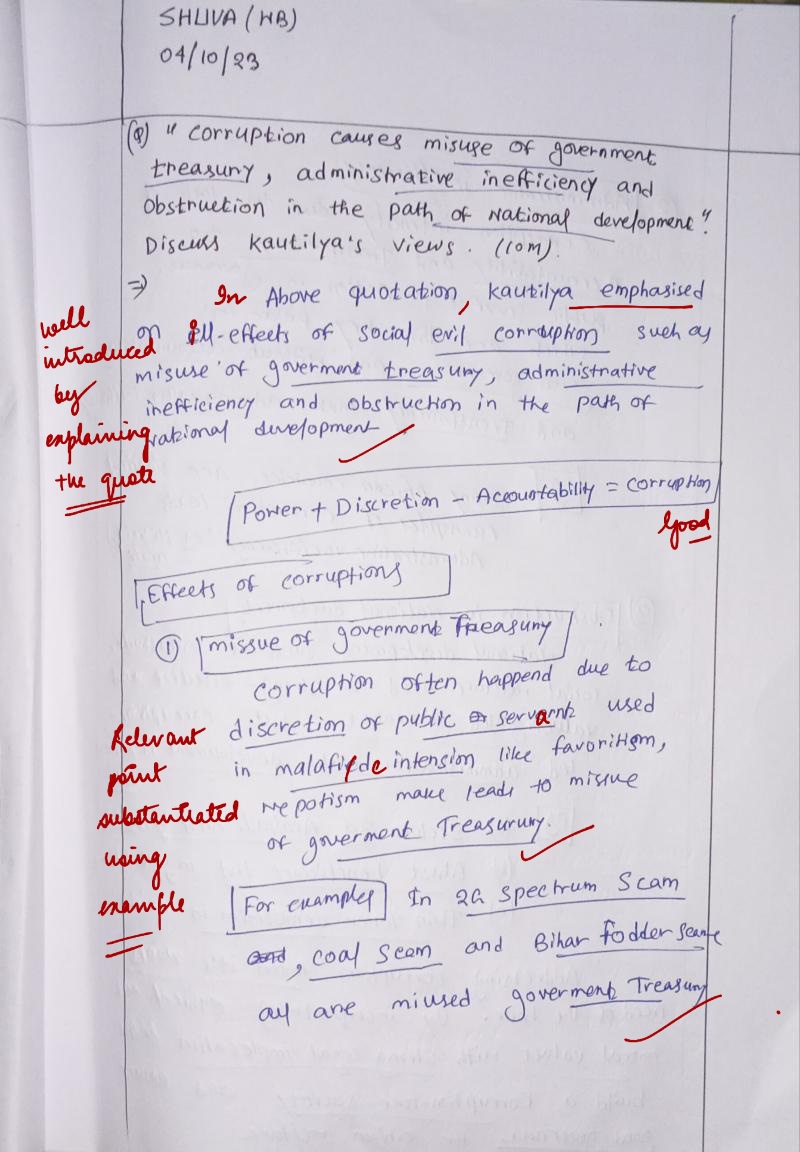 SHUVA (WB)
04/10/23
(Q) "Corruption causes misuse of government
treasury, administrative inefficiency and
Obstruction in the path of National development".
Discuss Kautilya's views. (10M).
⇒ In Above quotation, Kautilya emphasised
on ill-effects of social evil corruption such as
misuse of goverment treasury, administrative
inefficiency and obstruction in the path of
National development
well
introduced
by
explaining
the quote
Power + Discretion - Accountability = corruption
Good
Effects of corruptions
① missue of goverment Treasury
corruption often happend due to
discretion of public servant used
in malafide intension like favoritism,
Nepotism make leads to misuse
of goverment Treasurury.
Relevant
point
substantiated
using
example
For examples In 2G Spectrum Scam
, coal Scam and Bihar fodder Scame
all are miused goverment Treasury